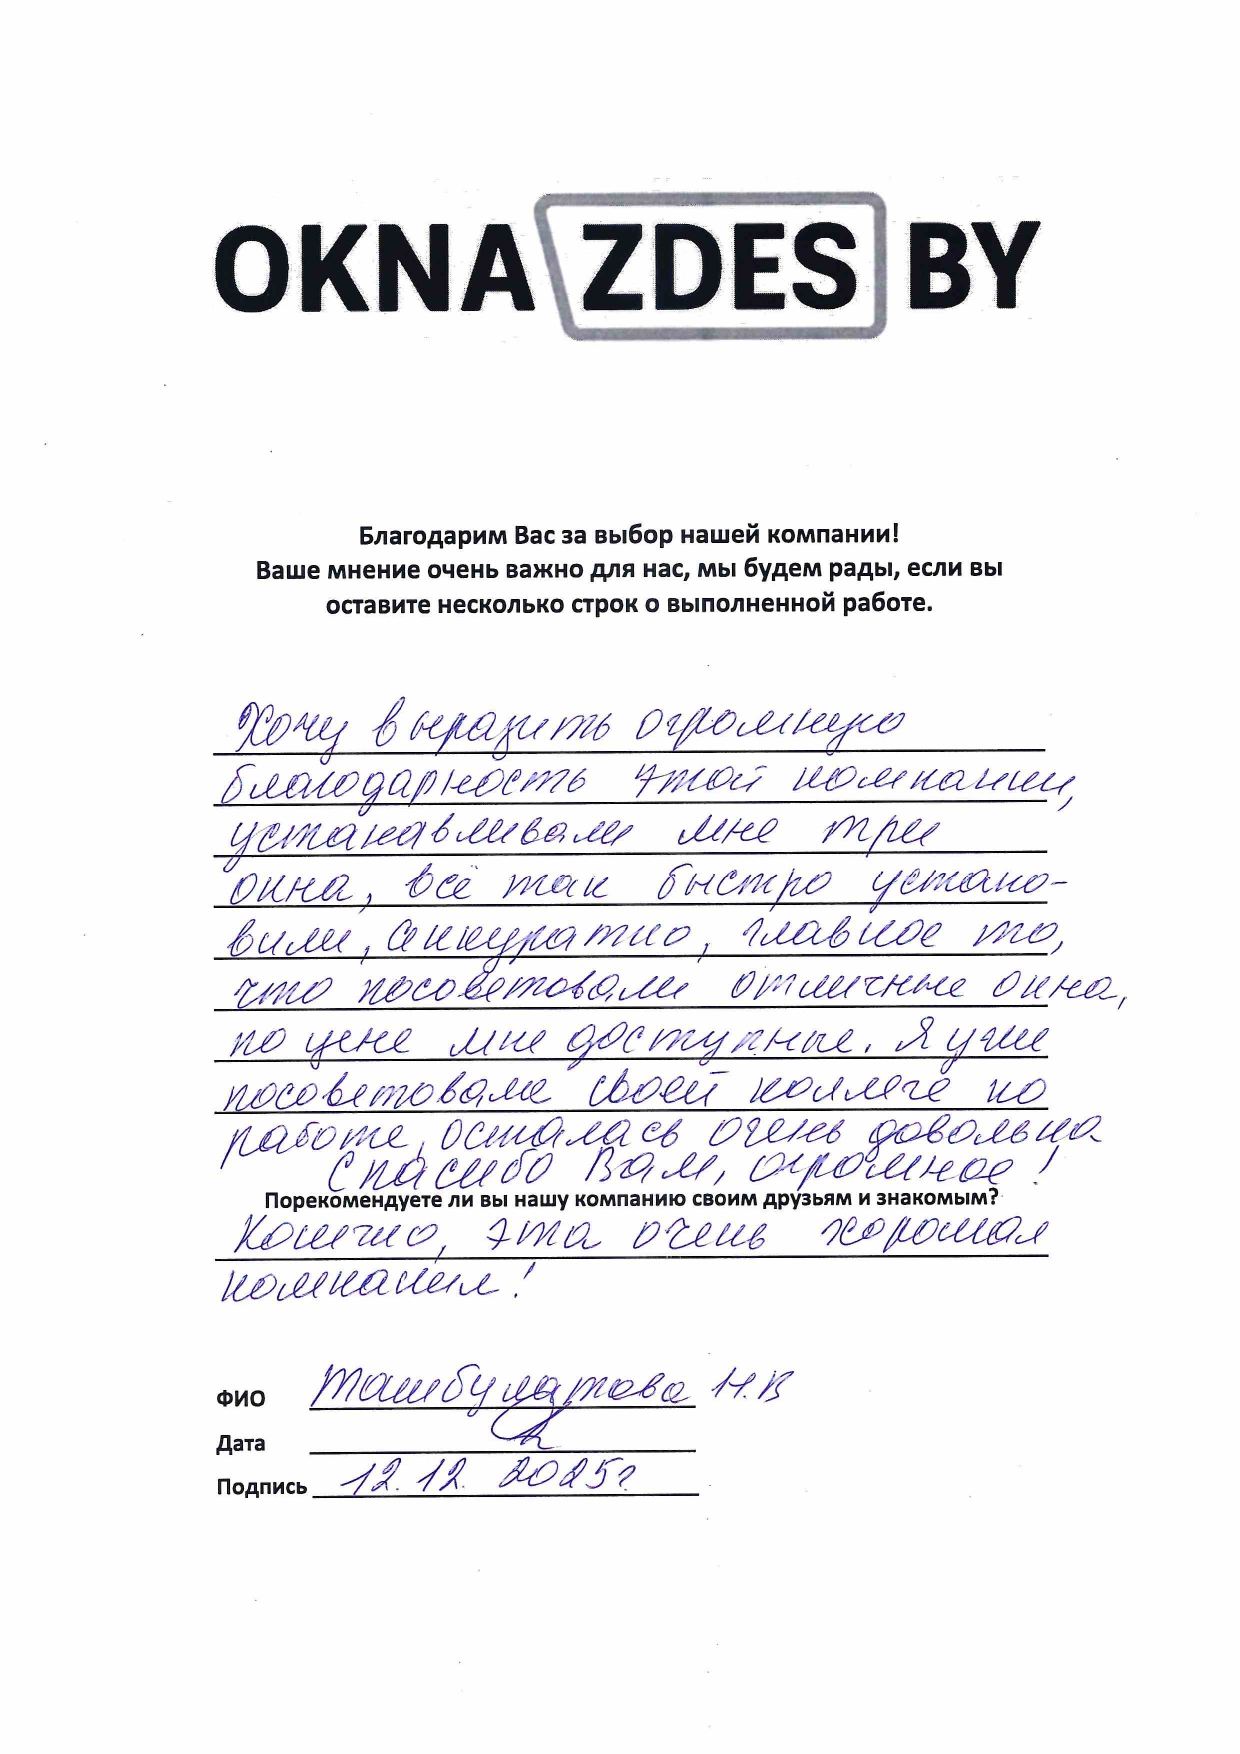 OKNA ZDES BY
Благодарим Вас за выбор нашей компании!
Ваше мнение очень важно для нас, мы будем рады, если вы
оставите несколько строк о выполненной работе.
Хочу выразить огромную
благодарность этой компании,
устанавливали мне три
окна, всё так быстро устано-
вили, аккуратно, главное то,
что посоветовали отличные окна,
по цене мне доступные. Я уже
посоветовала своей коллеге по
работе, осталась очень довольна
Спасибо Вам, огромное!
Порекомендуете ли вы нашу компанию своим друзьям и знакомым?
Конечно, эта очень хорошая
компания!
ФИО Ташбулатова Н.В
Дата
Подпись 12.12. 2025г.